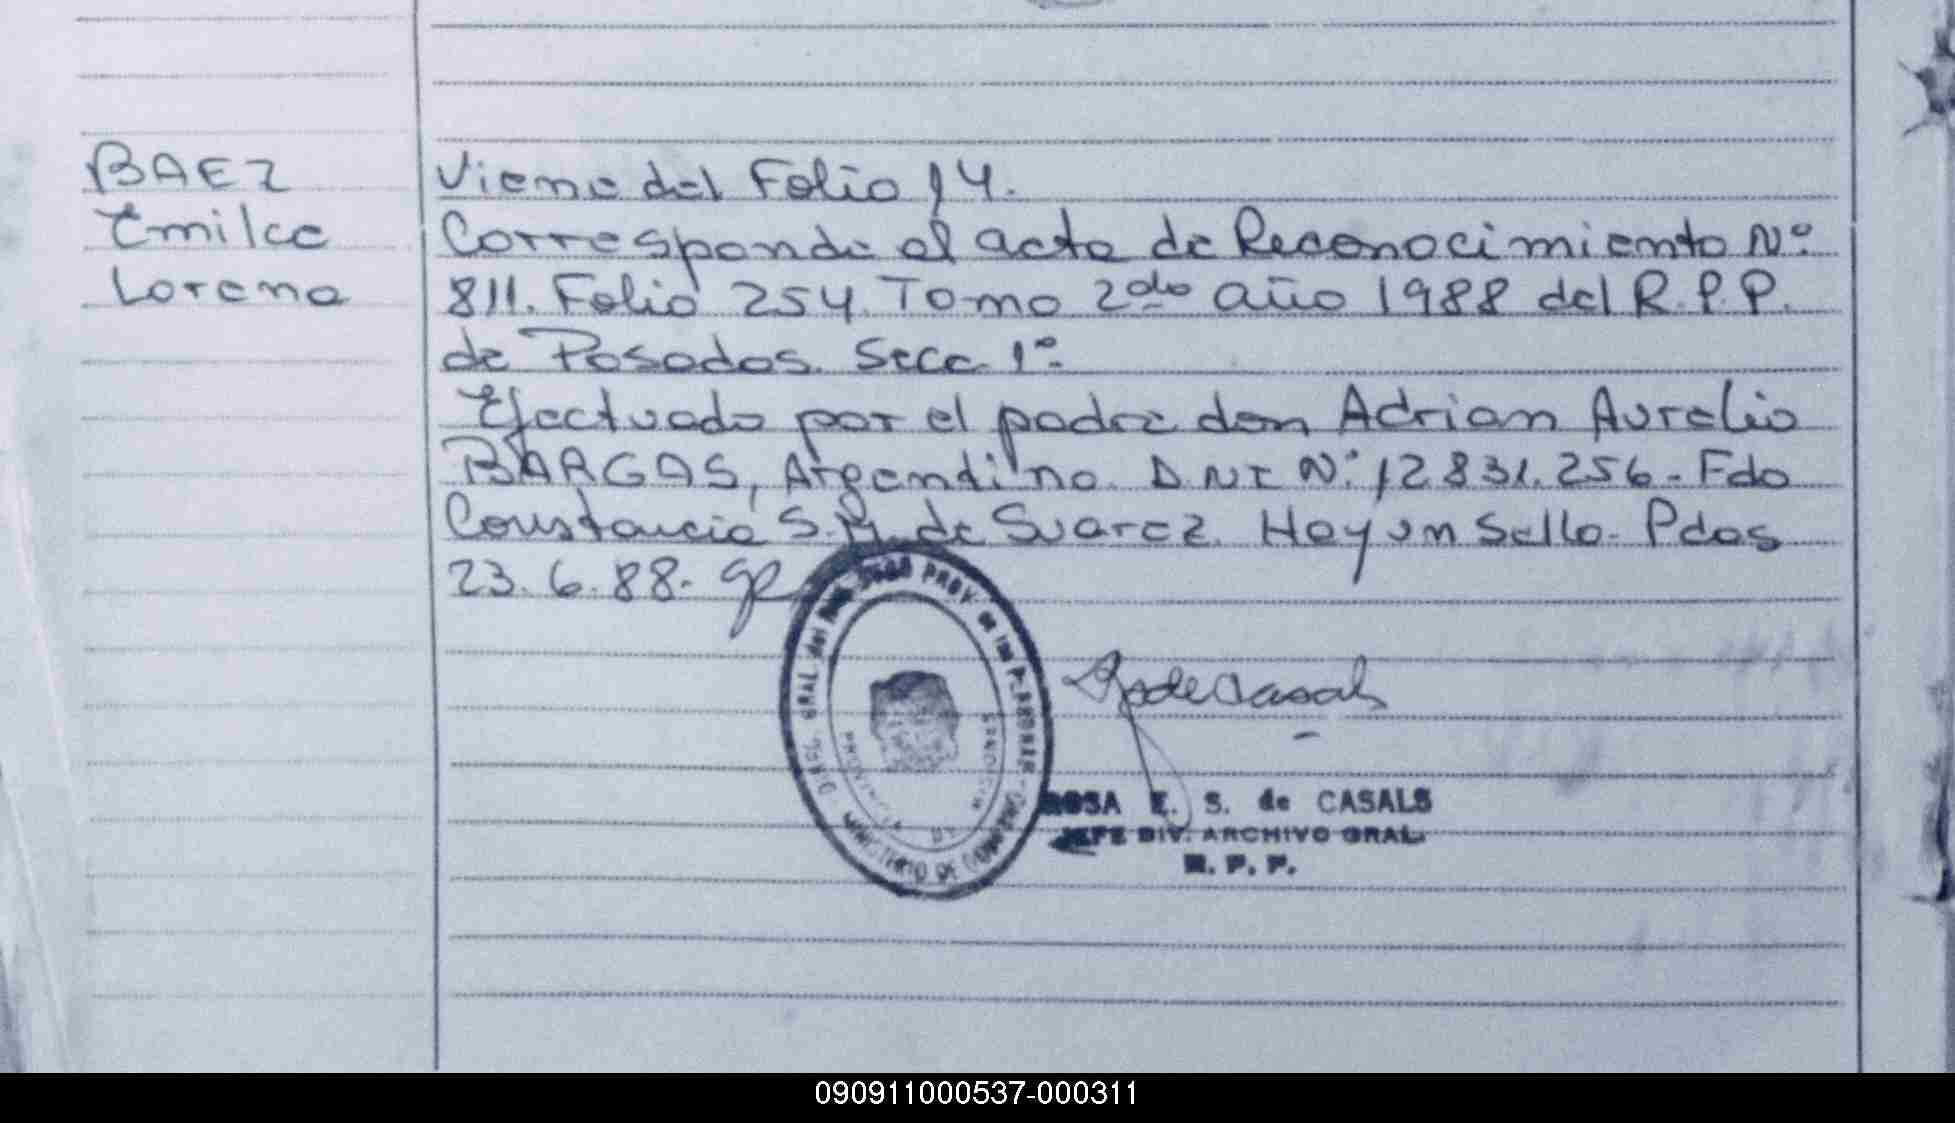 BAEZ
Emilce
Lorena
Viene del Folio 14.
Corresponde al acta de Reconocimiento Nº
811. Folio 254. Tomo 2do año 1988 del R.P.P.
de Posadas. Secc. 1º
Efectuado por el padre don Adrian Aurelio
BARGAS, Argentino. DNI Nº 12831.256. Fdo
Constancia S. M. de Suarez. Hay un Sello. Pdas
23.6.88.
GRAL. del PROV. de las PERSONAS
MINISTERIO DE GOBIERNO
PROVINCIA DE MISIONES
R de Casals
ROSA E. S. de CASALS
JEFE DIV. ARCHIVO GRAL.
R. P. P.
090911000537-000311